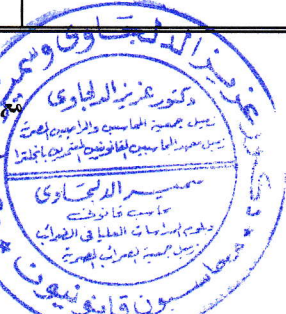 دكتور عزيز الدلجاوى
زميل جمعية المحاسبين والمراجعين المصرية
زميل معهد المحاسبين القانونيين المعتمدين بانجلترا
سمير الدلجاوى
محاسب قانونى
دبلوم الدراسات العليا فى الضرائب
زميل جمعية الضرائب المصرية
عزيز الدلجاوى وسمير
محاسبون قانونيون